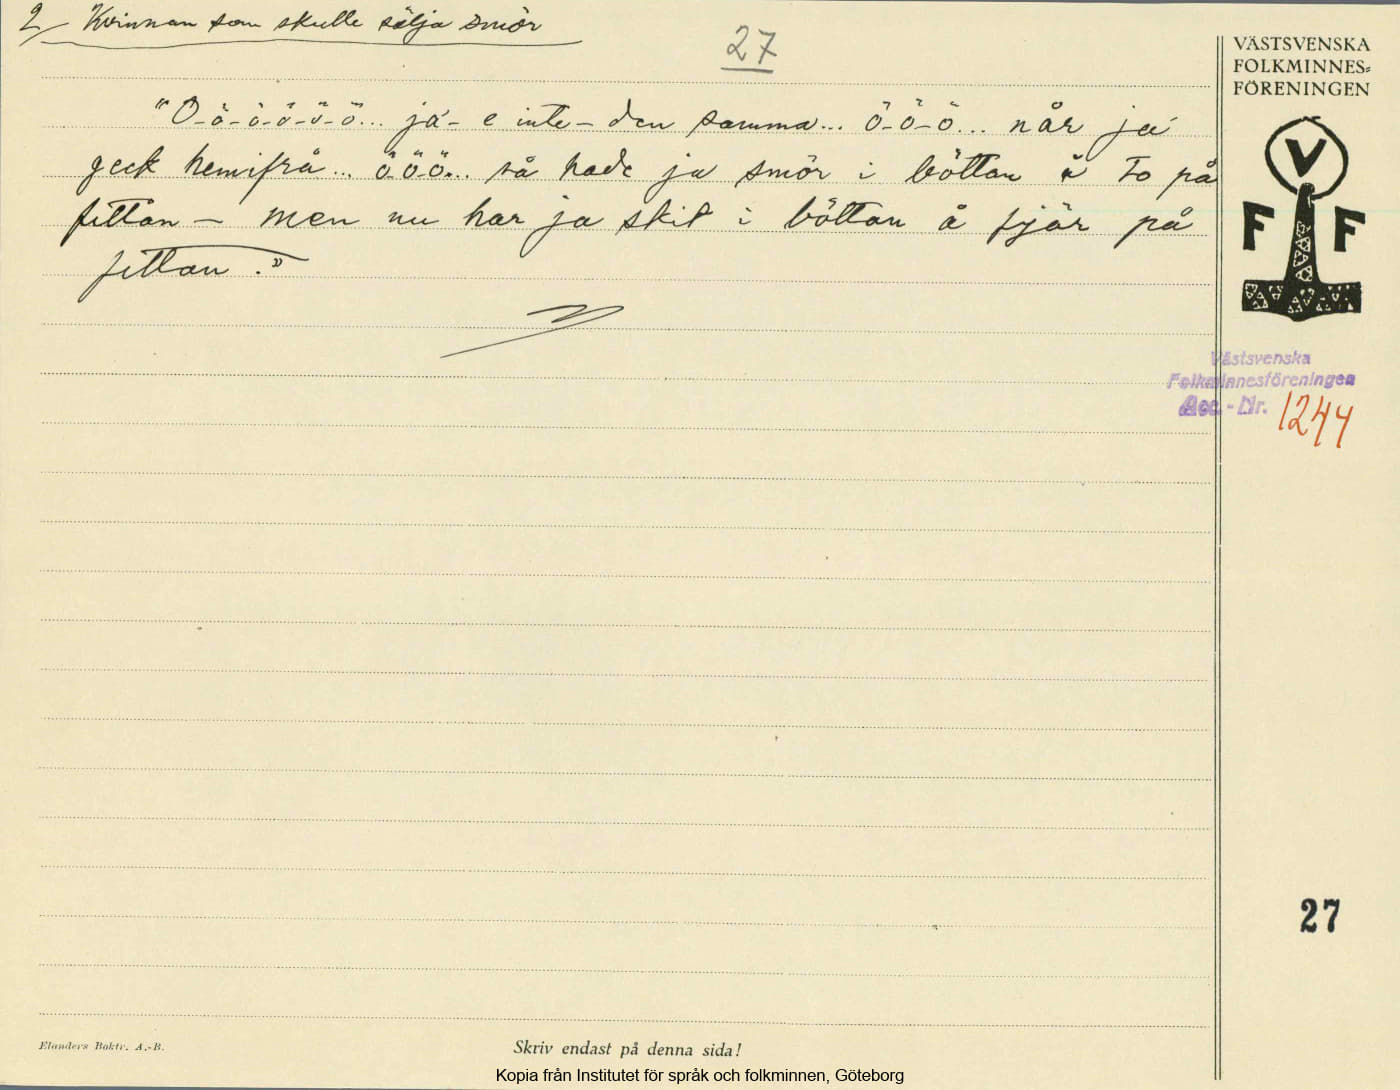 2/ Kvinnan som skulle sälja smör
27
"Ö-ö-ö-ö-ö-ö... ja - e inte - den samma... ö-ö-ö... når ja
geck hemifrå... ö-ö-ö... så hade ja smör i böttan å to på
fittan - men nu har ja skit i böttan å fjär på
fittan."
VÄSTSVENSKA
FOLKMINNES-
FÖRENINGEN
V
F F
Västsvenska
Folkminnesföreningen
Acc.-Nr. 1244
27
Elanders Boktr. A.-B.
Skriv endast på denna sida!
Kopia från Institutet för språk och folkminnen, Göteborg